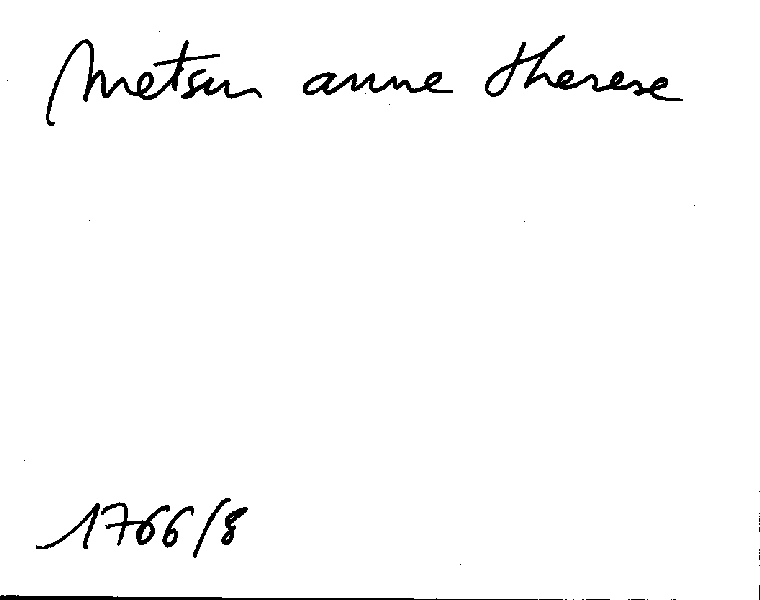 Metsu anne therese
1766/8